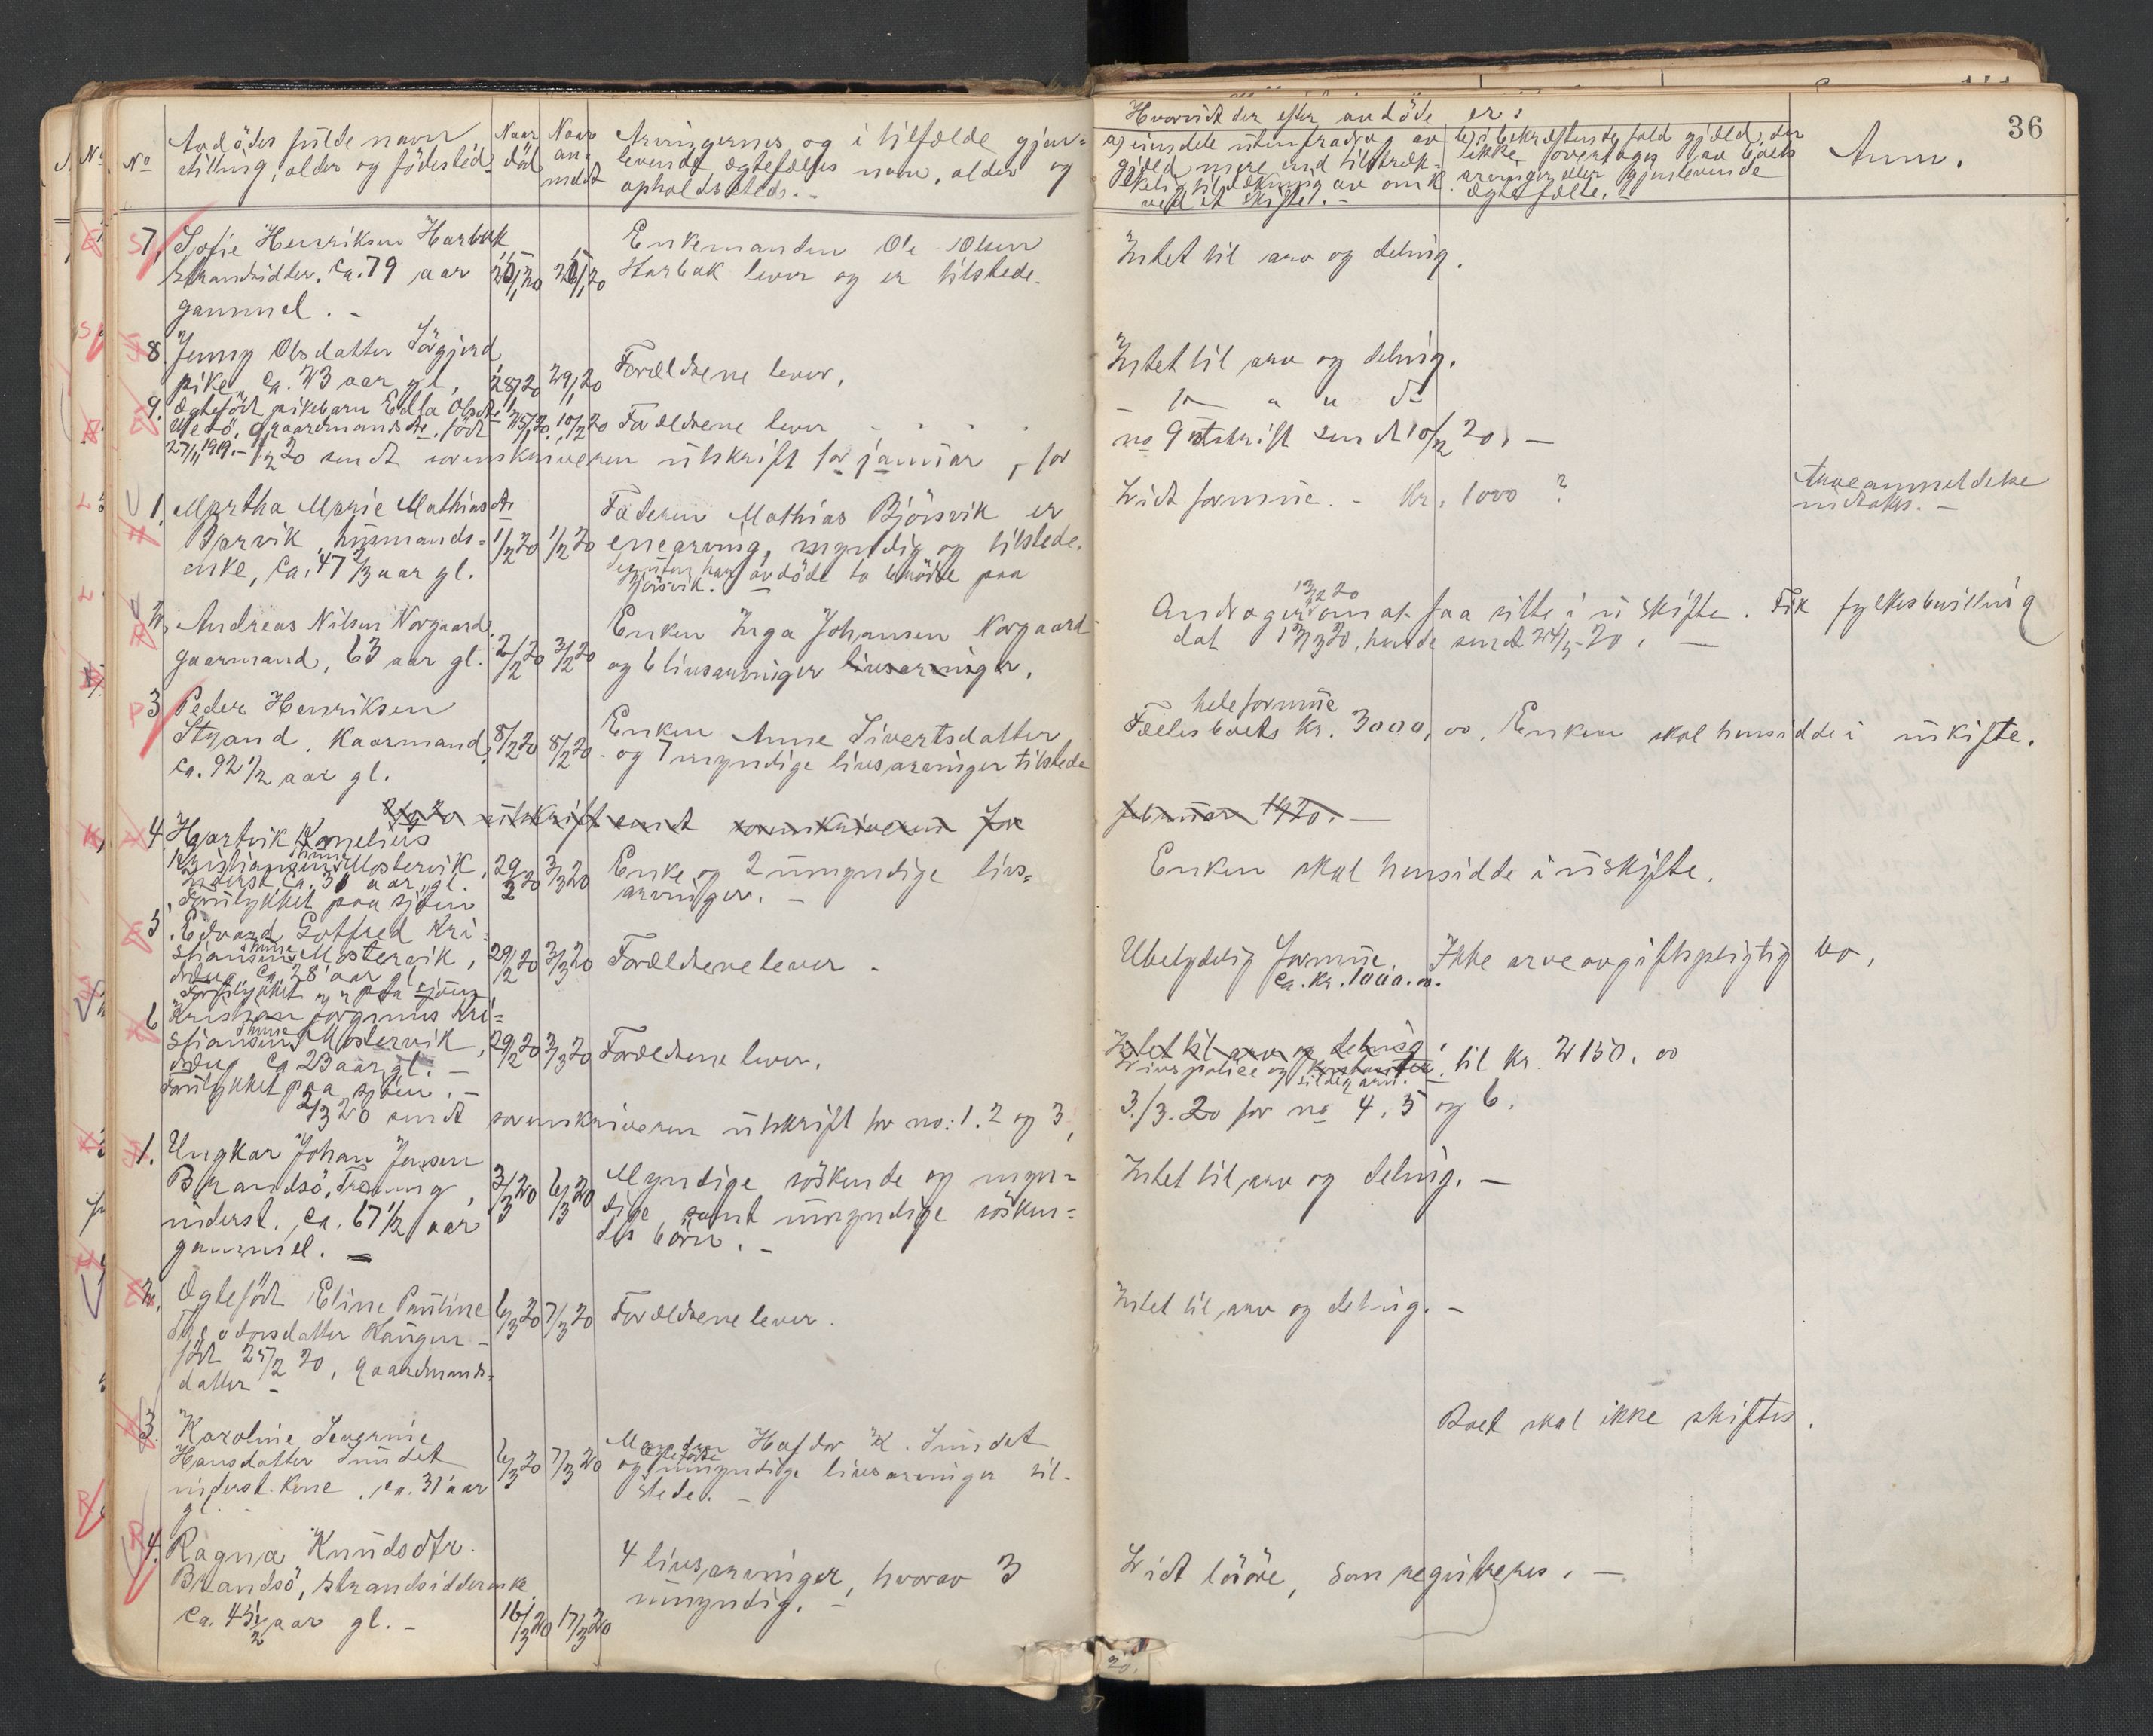 36
No
Avdödes fulde navn
stilling, alder og födested
Naar
död
Naar
an-
meldt
Arvingernes og i tilfælde gjen-
levende ægtefælles navn, alder og
opholdssteds. -
Hvorvidt der efter avdöde er:
a) eiendele uten fradrag av
gjæld mere end tilstræk-
kelig til dækning av omk.
ved et skifte. -
b) i bekræftende fald gjælden
ikke overtages av boets
arvinger eller gjenlevende
ægtefælle. -
Anm.
7. Sofie Henriksen Harbak
strandsidder, ca. 79 aar
gammel. -
Enkemanden Ole Olsen
Harbak lever og er tilstede.
Intet til arv og deling.
8. Jenny Olsdatter Sörgjerd
pike, ca. 23 aar gl.,
28/1 20 29/1 20
Forældrene lever.
Intet til arv og deling.
9. Ægtefödt pikebarn Edla Olsdtr
gaardmandsdtr, födt
27/11 1919. -
10/2 20
Forældrene lever
no 9 utskrift sendt 10/2 20. -
1/2 20 sendt sorenskriveren utskrift for januar, for
1. Martha Marie Mathiasdtr
Bjørvik, husmands-
enke, ca. 47 2/3 aar gl.
1/2 20 1/2 20
Faderen Mathias Björsvik er
enearving, myndig og tilstede.
desuten har avdöde to brödre paa
Björsvik. -
Lidt formue. - Kr. 1000 ?
Arveanmeldelse
mottokes. -
2. Andreas Nilsen Norgaard
gaarmand, 63 aar gl.
2/2 20 3/2 20
Enken Inga Johansen Norgaard
og 6 livsarvinger livsarvinger.
13/2 20
Andrager om at faa sitte i uskifte. Fik fylkesbevilling
dat 12/3 20, hende sendt 24/3 - 20. -
3 Peder Henriksen
Strand, Kaarmand,
ca. 92 1/2 aar gl.
8/2 20 8/2 20
Enken Anne Sivertsdatter
og 7 myndige livsarvinger tilstede
hele formue
Fælesboets Kr. 3000,00. Enken skal hensidde i uskifte.
utskrift sendt sorenskriveren for
februar 1920. -
4. Hjartvik Kornelius
Kristiansen Mostervik,
inderst, ca. 31 aar gl.
Forulykket paa sjöen
29/2 20 3/3 20
Enke og 2 umyndige livs-
arvinger. -
Enken skal hensidde i uskifte.
5. Edvard Gotfred Kri-
stiansen Mostervik,
ca. 28 aar gl.
Forulykket paa sjöen
29/2 20 3/3 20
Forældrene lever -
Ubetydelig formue. Ikke arveavgiftspligtig bo,
ca. kr. 1000.00.
6 Kristian Jorginus Kri-
stiansen Mostervik,
ca 23 aar gl. -
Forulykket paa sjöen. -
29/2 20 3/3 20
Forældrene lever.
Intet til arv og deling.
Livspolice og til kr. 2150.00
2/3 20 sendt sorenskriveren utskrift for no: 1. 2 og 3,
3./3. 20 for no 4, 5 og 6.
1. Ungkar Johan Jensen
Brandsö,
inderst, ca. 67 1/2 aar
gammel. -
3/3 20 6/3 20
Myndige söskende og myn-
dige samt umyndige sösken-
des börn. -
Intet til arv og deling. -
2. Ægtefödt Eline Pauline
datter
födt 25/2 20, gaardmands-
datter -
6/3 20 7/3 20
Forældrene lever.
Intet til arv og deling. -
3. Karoline Severine
Hansdatter Sundet
inderst. kone, ca. 31 aar
gl. -
6/3 20 7/3 20
Manden Hafdor K. Sundet
og umyndige livsarvinger til-
stede. -
Boet skal ikke skiftes.
4. Ragna Knudsdtr.
Brandsö, strandsidderenke
ca. 45 1/2 aar gl. -
16/3 20 17/3 20
4 livsarvinger, hvorav 3
umyndig. -
Lidt lösöre, som registreres. -